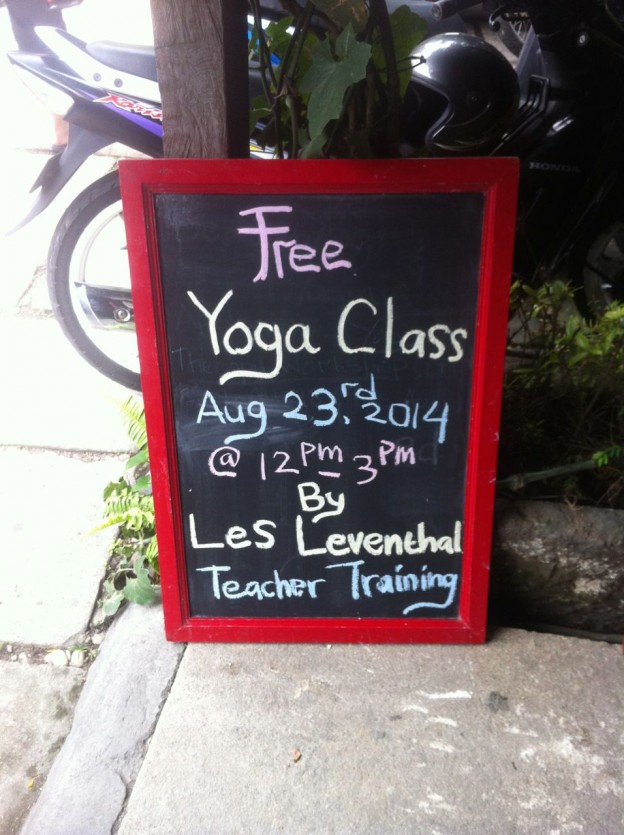 HONDA
Free
Yoga Class
Aug 23.rd 2014
@ 12 pm - 3 pm
By
Les Leventhal
Teacher Training